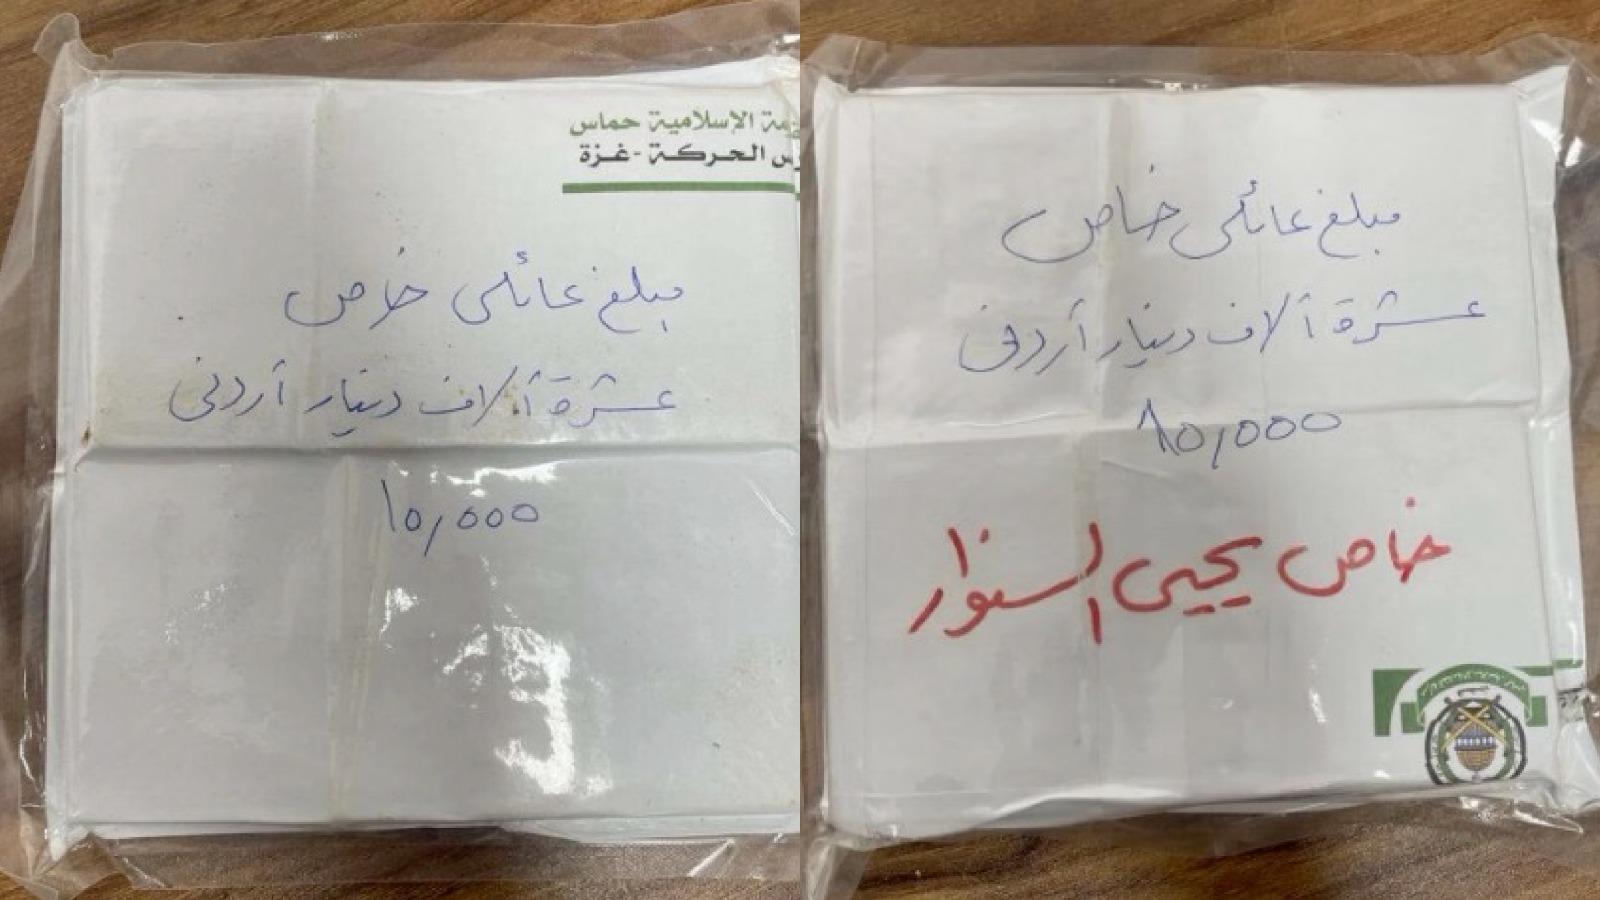 الإسلامية حماس
الحركة - غزة
مبلغ عائلي خاص
عشرة آلاف دينار أردني
١٥,٥٥٥
مبلغ عائلي خاص
عشرة آلاف دينار أردني
١٥,٥٥٥
خاص يحيى السنوار